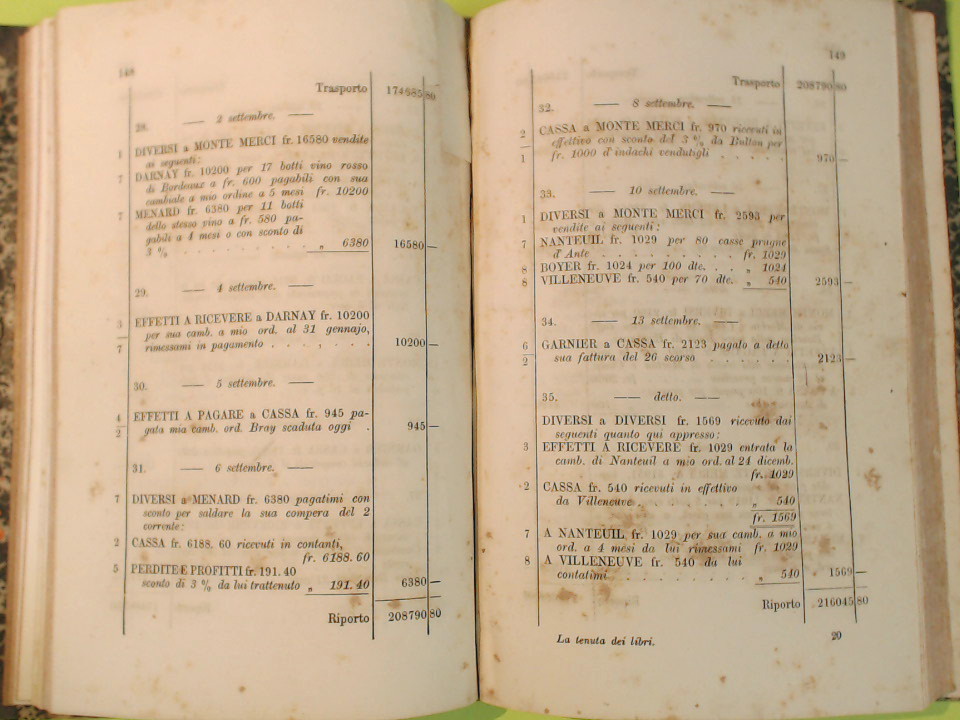 148
Trasporto 174685 80
28. — 2 settembre. —
1 DIVERSI a MONTE MERCI fr. 16580 vendite
ai seguenti:
7 DARNAY fr. 10200 per 17 botti vino rosso
di Bordeaux a fr. 600 pagabili con sua
cambiale a mio ordine a 5 mesi fr. 10200
7 MENARD fr. 6380 per 11 botti
dello stesso vino a fr. 580 pa-
gabili a 4 mesi o con sconto di
3 % . . . . . . . . . „ 6380 16580 —
29. — 4 settembre. —
3 EFFETTI A RICEVERE a DARNAY fr. 10200
per sua camb. a mio ord. al 31 gennajo,
7 rimessami in pagamento . . . , . . . 10200 —
30. — 5 settembre. —
4 EFFETTI A PAGARE a CASSA fr. 945 pa-
2 gata mia camb. ord. Bray scaduta oggi . 945 —
31. — 6 settembre. —
7 DIVERSI a MENARD fr. 6380 pagatimi con
sconto per saldare la sua compera del 2
corrente:
2 CASSA fr. 6188. 60 ricevuti in contanti,
fr. 6188. 60
5 PERDITE E PROFITTI fr. 191. 40
sconto di 3 % da lui trattenuto „ 191. 40 6380 —
Riporto 208790 80
149
Trasporto 208790 80
32. — 8 settembre. —
2 CASSA a MONTE MERCI fr. 970 ricevuti in
effettivo con sconto del 3 % da Bulton per
1 fr. 1000 d'indachi vendutigli . . . . . 970 —
33. — 10 settembre. —
1 DIVERSI a MONTE MERCI fr. 2593 per
vendite ai seguenti:
7 NANTEUIL fr. 1029 per 80 casse prugne
d'Ante . . . . . . . . . fr. 1029
8 BOYER fr. 1024 per 100 dte. . . „ 1024
8 VILLENEUVE fr. 540 per 70 dte. „ 540 2593 —
34. — 13 settembre. —
6 GARNIER a CASSA fr. 2123 pagato a detto
2 sua fattura del 26 scorso . . . . . . 2123 —
35. — detto. —
DIVERSI a DIVERSI fr. 1569 ricevuto dai
seguenti quanto qui appresso:
3 EFFETTI A RICEVERE fr. 1029 entrata la
camb. di Nanteuil a mio ord. al 24 dicemb.
fr. 1029
2 CASSA fr. 540 ricevuti in effettivo
da Villeneuve . . . . . . . . „ 540
fr. 1569
7 A NANTEUIL fr. 1029 per sua camb. a mio
ord. a 4 mesi da lui rimessami fr. 1029
8 A VILLENEUVE fr. 540 da lui
contatimi . . . . . . . . . „ 540 1569 —
Riporto 216045 80
La tenuta dei libri. 20